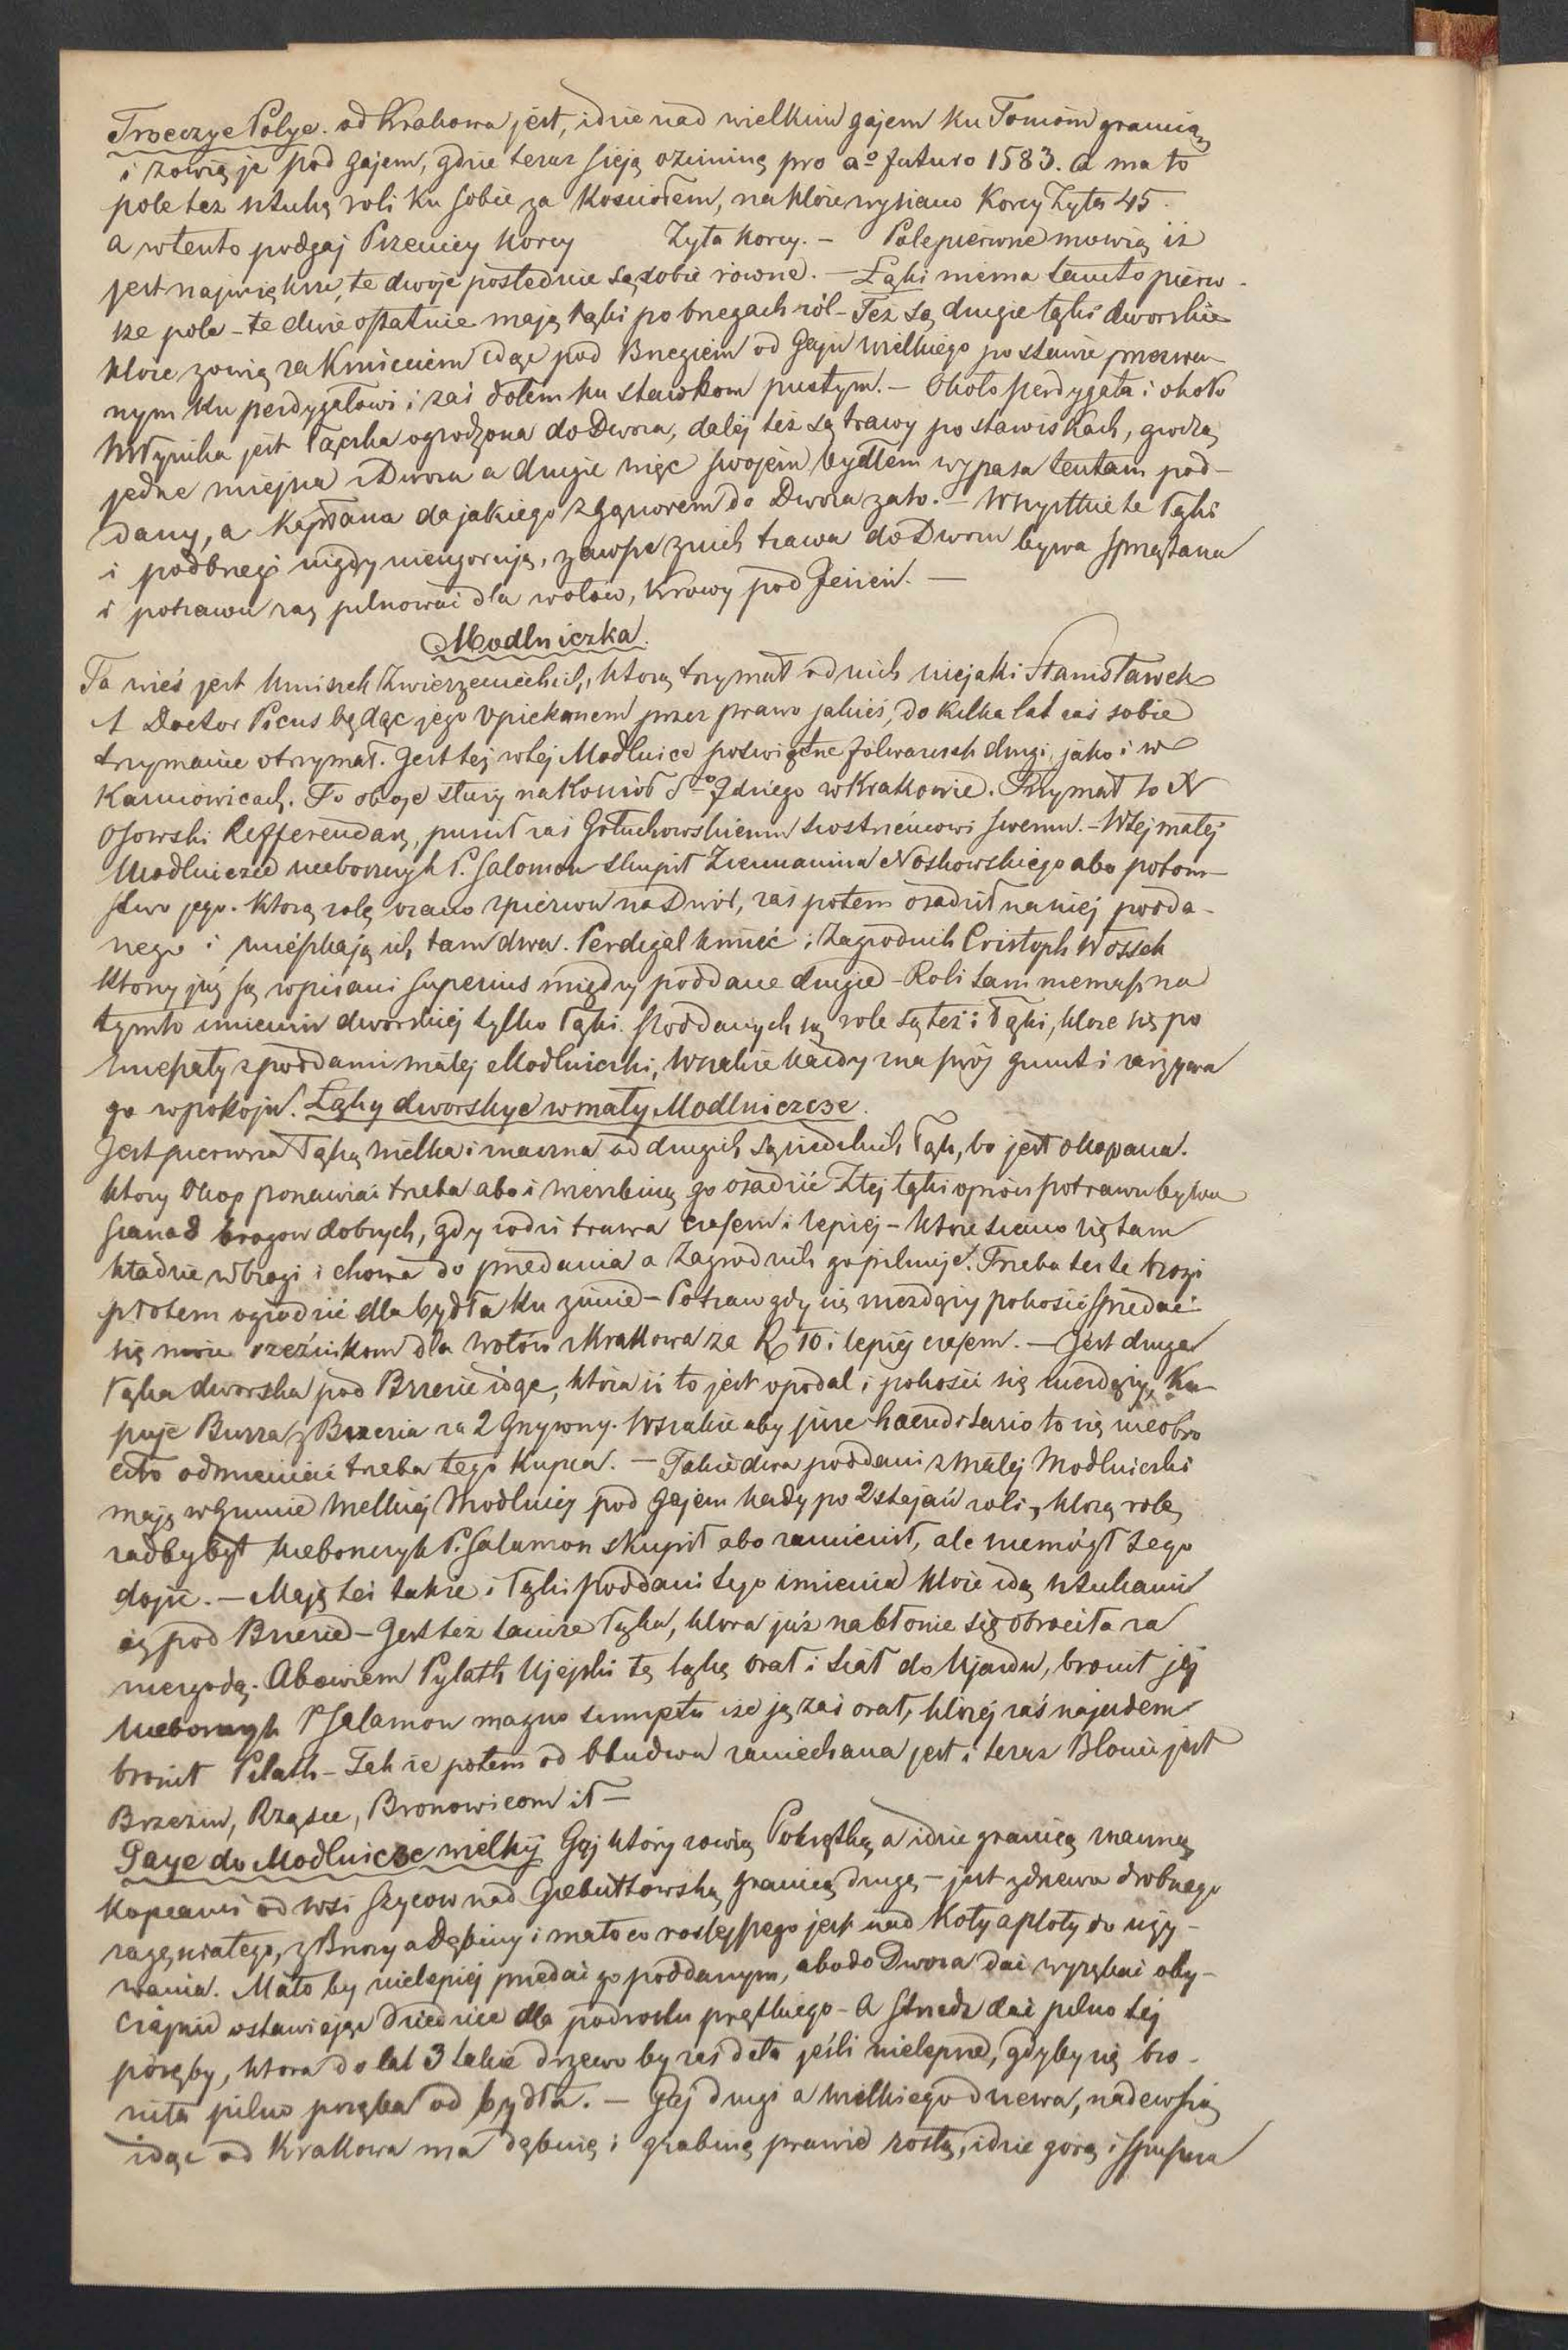 Trzeczye Polye. od Krakowa jest, idzie nad wielkim gajem ku Toniom granicą
i zowią je pod gajem, gdzie teraz sieją oziminę pro aº futuro 1583. a ma to
pole tez sztukę roli ku sobie za Kosciołem, na które wysiano Korcy Zyta 45.
a w tento podgaj Pszenicy Korcy Zyta korcy. – Pole pierwne mowią iż
jest największe, te dwoje poslednie są sobie rowne. – Łąki niema tamto pierw-
sze pole – te dwie ostatnie mają łąki po brzegach ról – Też są drugie łąki dworskie
które zowią za Kmieciem idąc pod Brzegiem od Gaju wielkiego po stawie przerwa-
nym ku perdygałowi i zaś dołem ku stawkom pustym. – Około perdygała i około
Młynika jest łączka ogrodzona do Dwora, dalej też są trawy po stawiskach, grodzą
jedne miejsca Dworu a drugie więc swojem bydłem wypasa tentam pod-
dany, a Kapłana da jakiego z gąsiorem do Dwora zato. – Wszystkie te łąki
i podbrzegi nigdy niezgorują, zawsze z nich trawa do Dworu bywa sprzątana
i potrawu zaś pilnować dla wołów, krowy pod Jesień. –
Modlniczka.
Ta wieś jest Mniszek Zwierzynieckich, którą trzymał od nich niejaki Stanisławek
A Doctor Picus będąc jego Opiekunem przez prawo jakieś, do kilka lat zaś sobie
trzymanie otrzymał. Jest tej w tej Modlnice poświętne folwarczek drugi, jako i w
Karniowicach. To oboje służy na Kościół Sgo Idziego w Krakowie. Trzymał to X
Osowski Refferendarz, puścił zaś Gołuchowskiemu siostrzeńcowi swemu. – W tej małej
Modlniczce nieboszczyk P. Salomon skupił Ziemianina Noskowskiego abo potom-
stwo jego. Którą rolę orano zpierwu na Dwór, zaś potem osadził na niej podda-
nego i mieszkają ich tam dwa. Perdigal kmieć i Zagrodnik Cristoph Wossek
ktorzy już są wpisani superius między poddane drugie – Roli tam niemasz na
tymto imieniu dworskiej tylko łąki. Poddanych są role są też i łąki, ktore się po
mieszały z poddami małej Modlniczki, Wszakże każdy zna swój grunt i zarzywa
go w pokoju. Łąky dworskye w mały Modlniczcze.
Jest pierwsza łąka wielka i znaczna od drugich sąsiedzkich łąk, bo jest okopana.
ktory Okop ponawiać trzeba abo i wierzbiną go osadzić Z tej łąki oprócz potrawu bywa
siana 8 brogow dobrych, gdy rodzi trawa czasem i lepiej – które siano się tam
kładzie w brogi i chowa do przedania a Zagrodnik go pilnuje. Trzeba też te brogi
płotem ogrodzić dla bydła ku zimie – Potraw gdy się niezdarzy pokosić sprzedać
się może rzeźnikom dla wołów z Krakowa za R 10 i lepiej czasem. – Jest druga
łąka dworska pod Brzezie idąc, która iż to jest opodal i pokosić się niezdarzy, Ku-
puje Burza z Brzezia za 2 Grzywny. Wszakże aby jure haereditario to się nieobro
ciło odmieniać trzeba tego kupca. – Takie dwa poddani z małej Modlniczki
mają w Grunie Wielkiej Modlnicy pod gajem każdy po 2 stajań roli, którą rolę
radby był nieboszczyk P. Salamon skupił abo zamienił, ale niemógł tego
dojść. – Mają też także i łąki Poddani tego imienia które idą sztukami
aż pod Brzezie – Jest też tamże łąka, ktora już na błonie się obrociła za
niezgodą. Abowiem Pylath Ujejski tę łąkę orał i siał do Ujazdu, bronił jej
nieboszczyk P Salamon magno sumptu iże ją zaś orał, której zaś najazdem
bronił Pilath – Tak że potem od obudwu zaniechana jest i teraz Błonie jest
Brzeziu, Rząsce, Bronowicom it –
Gaye do Modlnicze wielky Gaj który zowią Pokrątką a idzie granicą znaczną
kopcami od wsi Szycow nad Giebułtowską granicą drugą – jest z drzewa drobnego
zagęsiałego, z Brzozy a Dębiny i mało co roslejszego jest nad Koły a płoty do uży-
wania. Mało by nielepiej przedać go poddanym, abo do Dwora dać wyrąbać oby-
czajnie ostawiając Dziedzice dla podrostu prędkiego – A strzedz dać pilno tej
poręby, ktora do lat 3 takie drzewo by zaś dała jeśli nielepsze, gdyby się bro-
niła pilno poręba od bydła. – Gaj drugi a wielkiego drzewa, nadewsią
idąc od Krakowa ma dębinę i grabinę prawie rosłą, idzie gorą i spuszcza